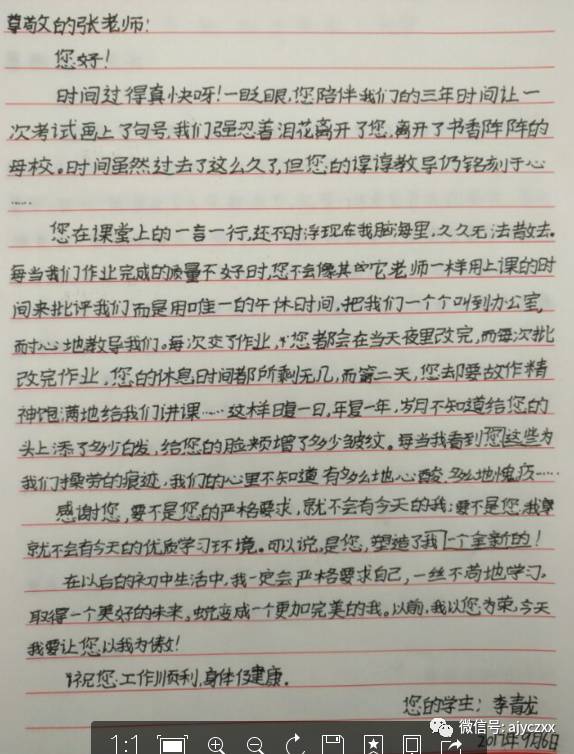 尊敬的张老师:
您好!
时间过得真快呀!一眨眼,您陪伴我们的三年时间让一
次考试画上了句号,我们强忍着泪花离开了您,离开了书香阵阵的
母校。时间虽然过去了这么久了,但您的谆谆教导仍铭刻于心
……
您在课堂上的一言一行,还不时浮现在我脑海里,久久无法散去。
每当我们作业完成的质量不好时,您不会像其它老师一样用上课的时
间来批评我们而是用唯一的午休时间,把我们一个个叫到办公室,
耐心地教导我们。每次交了作业,您都会在当天夜里改完,而每次批
改完作业,您的休息时间都所剩无几,而第二天,您却要故作精
神饱满地给我们讲课……这样日复一日,年复一年,岁月不知道给您的
头上添了多少白发,给您的脸颊增了多少皱纹。每当我看到您这些为
我们操劳的痕迹,我们的心里不知道有多么地心酸,多么地愧疚……
感谢您,要不是您的严格要求,就不会有今天的我;要不是您,我
就不会有今天的优质学习环境。可以说,是您,塑造了我一个全新的!
在以后的初中生活中,我一定会严格要求自己,一丝不苟地学习。
取得一个更好的未来,蜕变成一个更加完美的我。以前,我以您为荣,今天
我要让您以我为傲!
祝您:工作顺利,身体健康。
您的学生:李青龙
微信号: ajyczxx
2017年9月6日
1:1